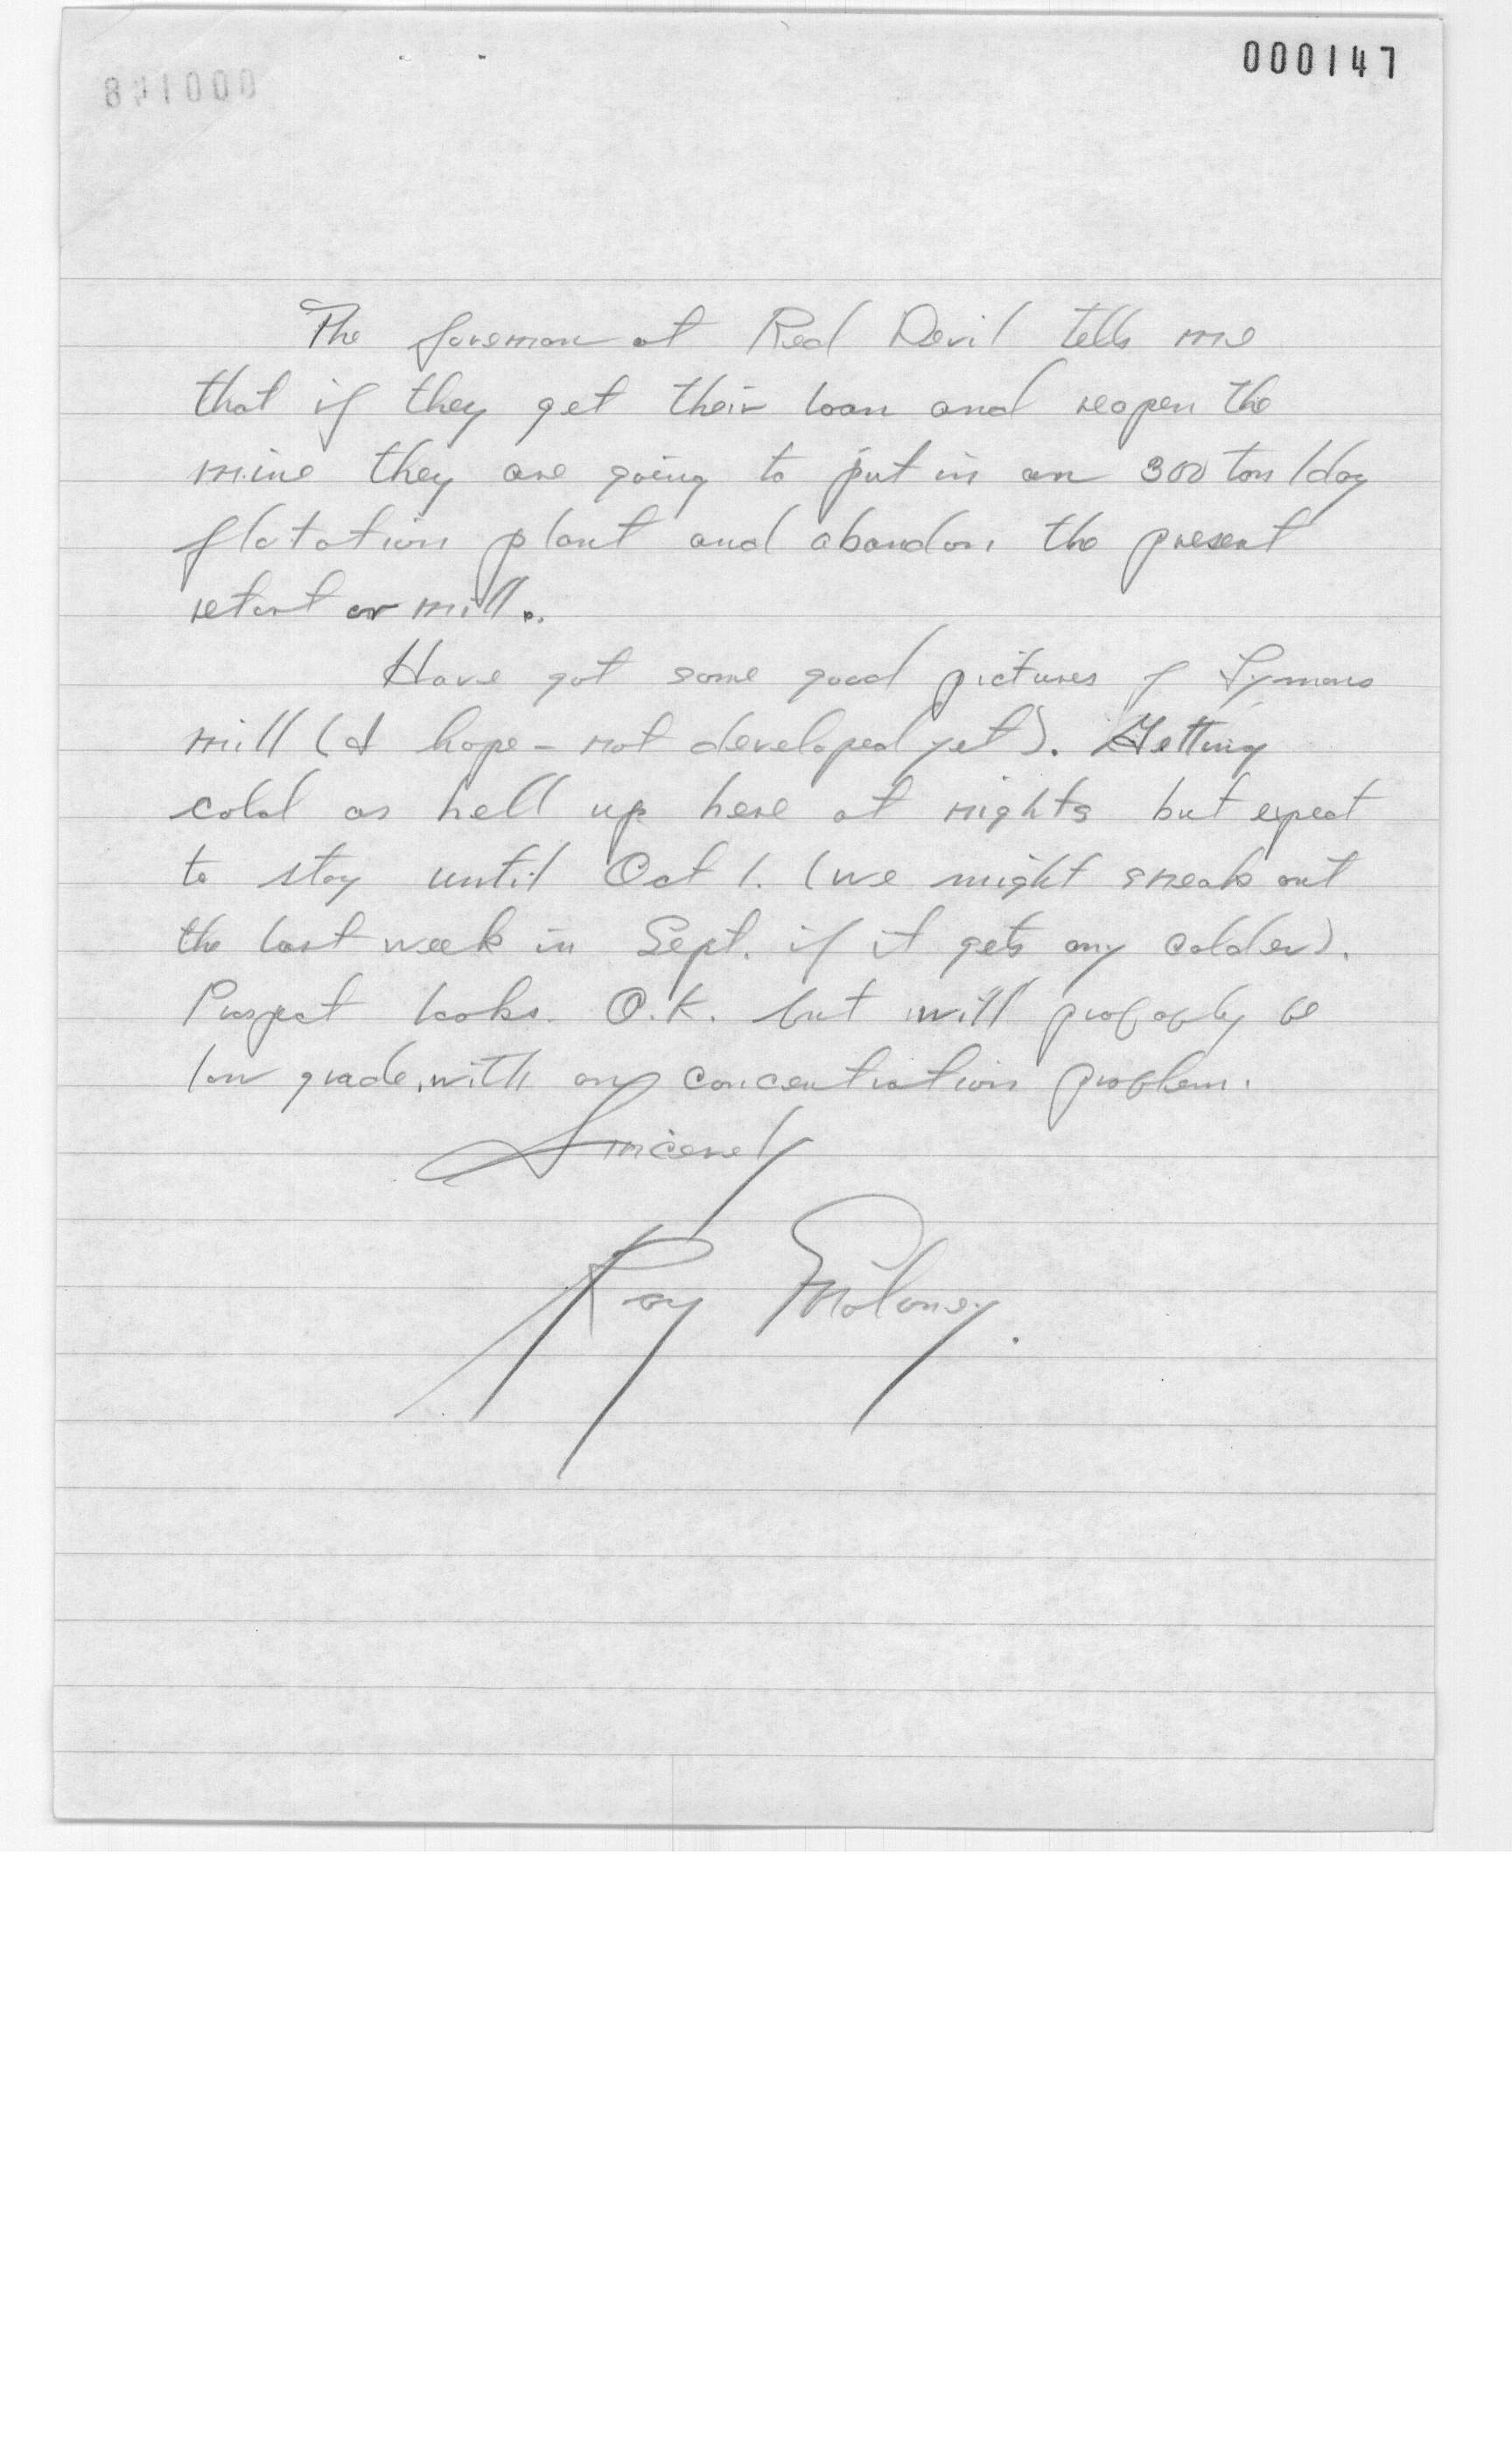 000147
The foreman at Red Devil tells me
that if they get their loan and reopen the
mine they are going to put in an 300 ton/day
flotation plant and abandon the present
retort or mill.
Have got some good pictures of Lymans
mill (I hope - not developed yet). Getting
cold as hell up here at nights but expect
to stay until Oct 1. (we might sneak out
the last week in Sept. if it gets any colder).
Prospect looks O.K. but will probably be
low grade, with any concentration problem.
Sincerely
Ray Maloney.